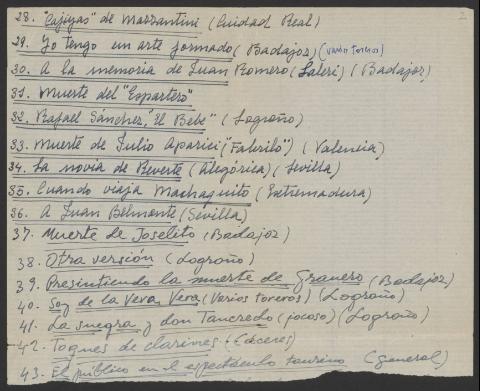 28. "Cajigas" de Mazzantini (Ciudad Real)
29. Yo tengo un arte formado (Badajoz) (varios toreros)
30. A la memoria de Juan Romero (Saleri) (Badajoz)
31. Muerte del "Espartero"
32. Rafael Sánchez, "El Bebe" (Logroño)
33. Muerte de Julio Aparici ("Fabrilo") (Valencia)
34. La novia de Reverte (Alegórica) (Sevilla)
35. Cuando viaja Machaquito (Extremadura)
36. A Juan Belmonte (Sevilla)
37. Muerte de Joselito (Badajoz)
38. Otra versión (Logroño)
39. Presintiendo la muerte de Granero (Badajoz)
40. Soy de la Vera, Vera (Varios toreros) (Logroño)
41. La suegra y don Tancredo (jocoso) (Logroño)
42. Toques de clarines (Cáceres)
43. El público en el espectáculo taurino (general)